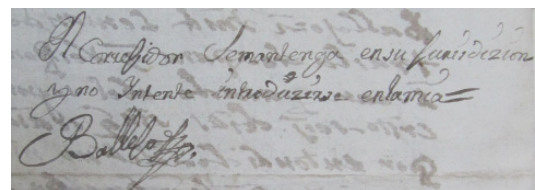 El Corregidor Se mantenga en su Juridizion
y no Intente introduzirse en la mia =